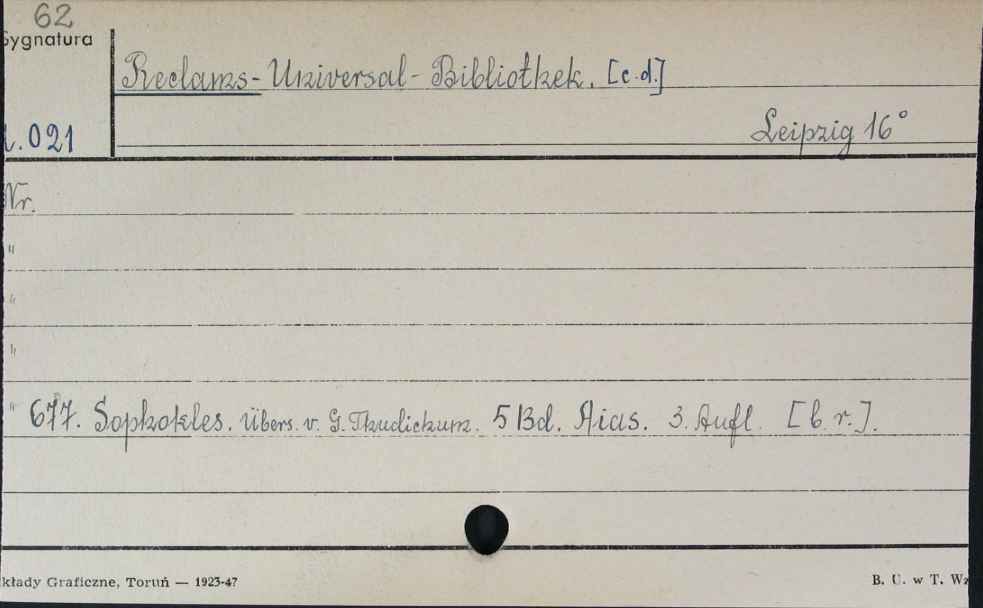 62
Sygnatura
Reclams-Universal-Bibliothek. [c.d.]
.021
Leipzig 16°
Nr.
"
"
"
" 677. Sophokles. Übers. v. G. Thudichum. 5 Bd. Aias. 3. Aufl. [b. r.].
kłady Graficzne, Toruń — 1923-47
B. U. w T. Wz